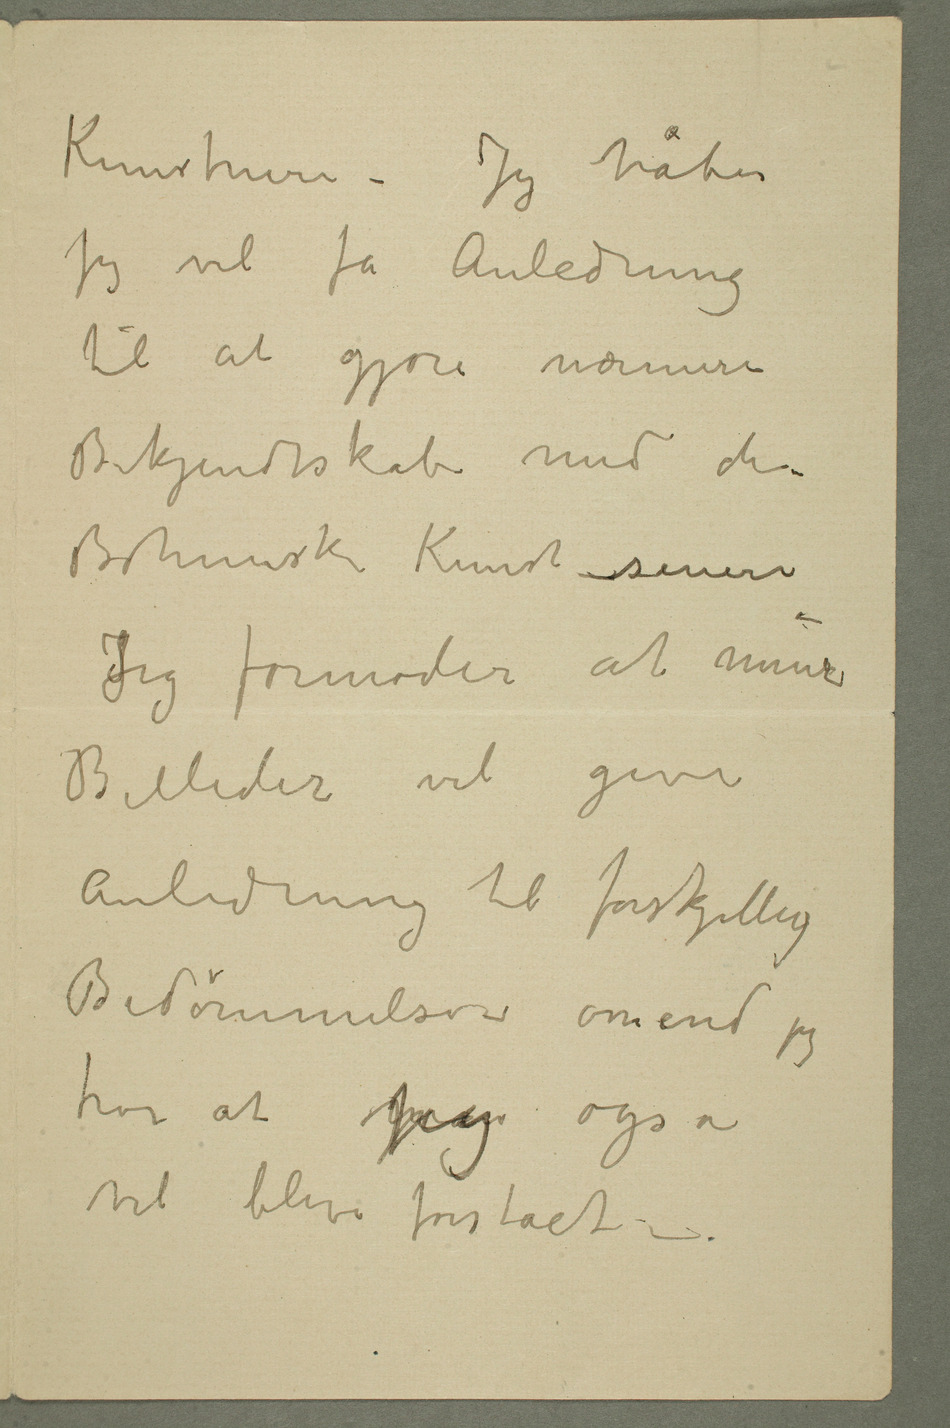 Kunstnere – Jeg håber
jeg vil fa Anledning
til at gjøre nærmere
Bekjendtskab med den
Bøhmiske Kunst – senere
Jeg formoder at mine
Billeder vil give
Anledning til forskjellig
Bedömmelse omend jeg
tror at jeg også
vil blive forstaaet –.